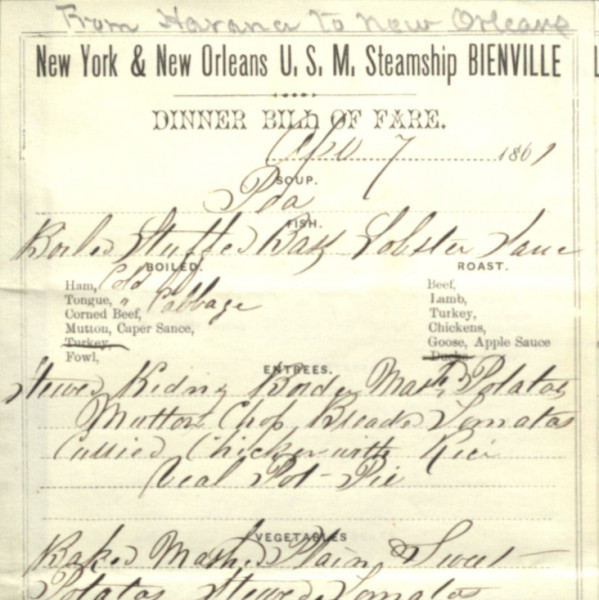 From Havana to New Orleans
New York & New Orleans U. S. M. Steamship BIENVILLE
DINNER BILL OF FARE.
Apl 7 1861
SOUP.
Pea
FISH.
Boiled Stuffed Bass Lobster Sauce
BOILED.
Ham, Cold
Tongue, " Cabbage
Corned Beef,
Mutton, Caper Sance,
Turkey,
Fowl,
ROAST.
Beef,
Lamb,
Turkey,
Chickens,
Goose, Apple Sauce
Ducks
ENTREES.
Stewed Kidny Border Mash Potatos
Mutton Chop Breaded Tomatos
Curried Chicken with Rice
Veal Pot-Pie
VEGETABLES
Baked Mashed Plain & Sweet
Potatos Stewed Tomatos